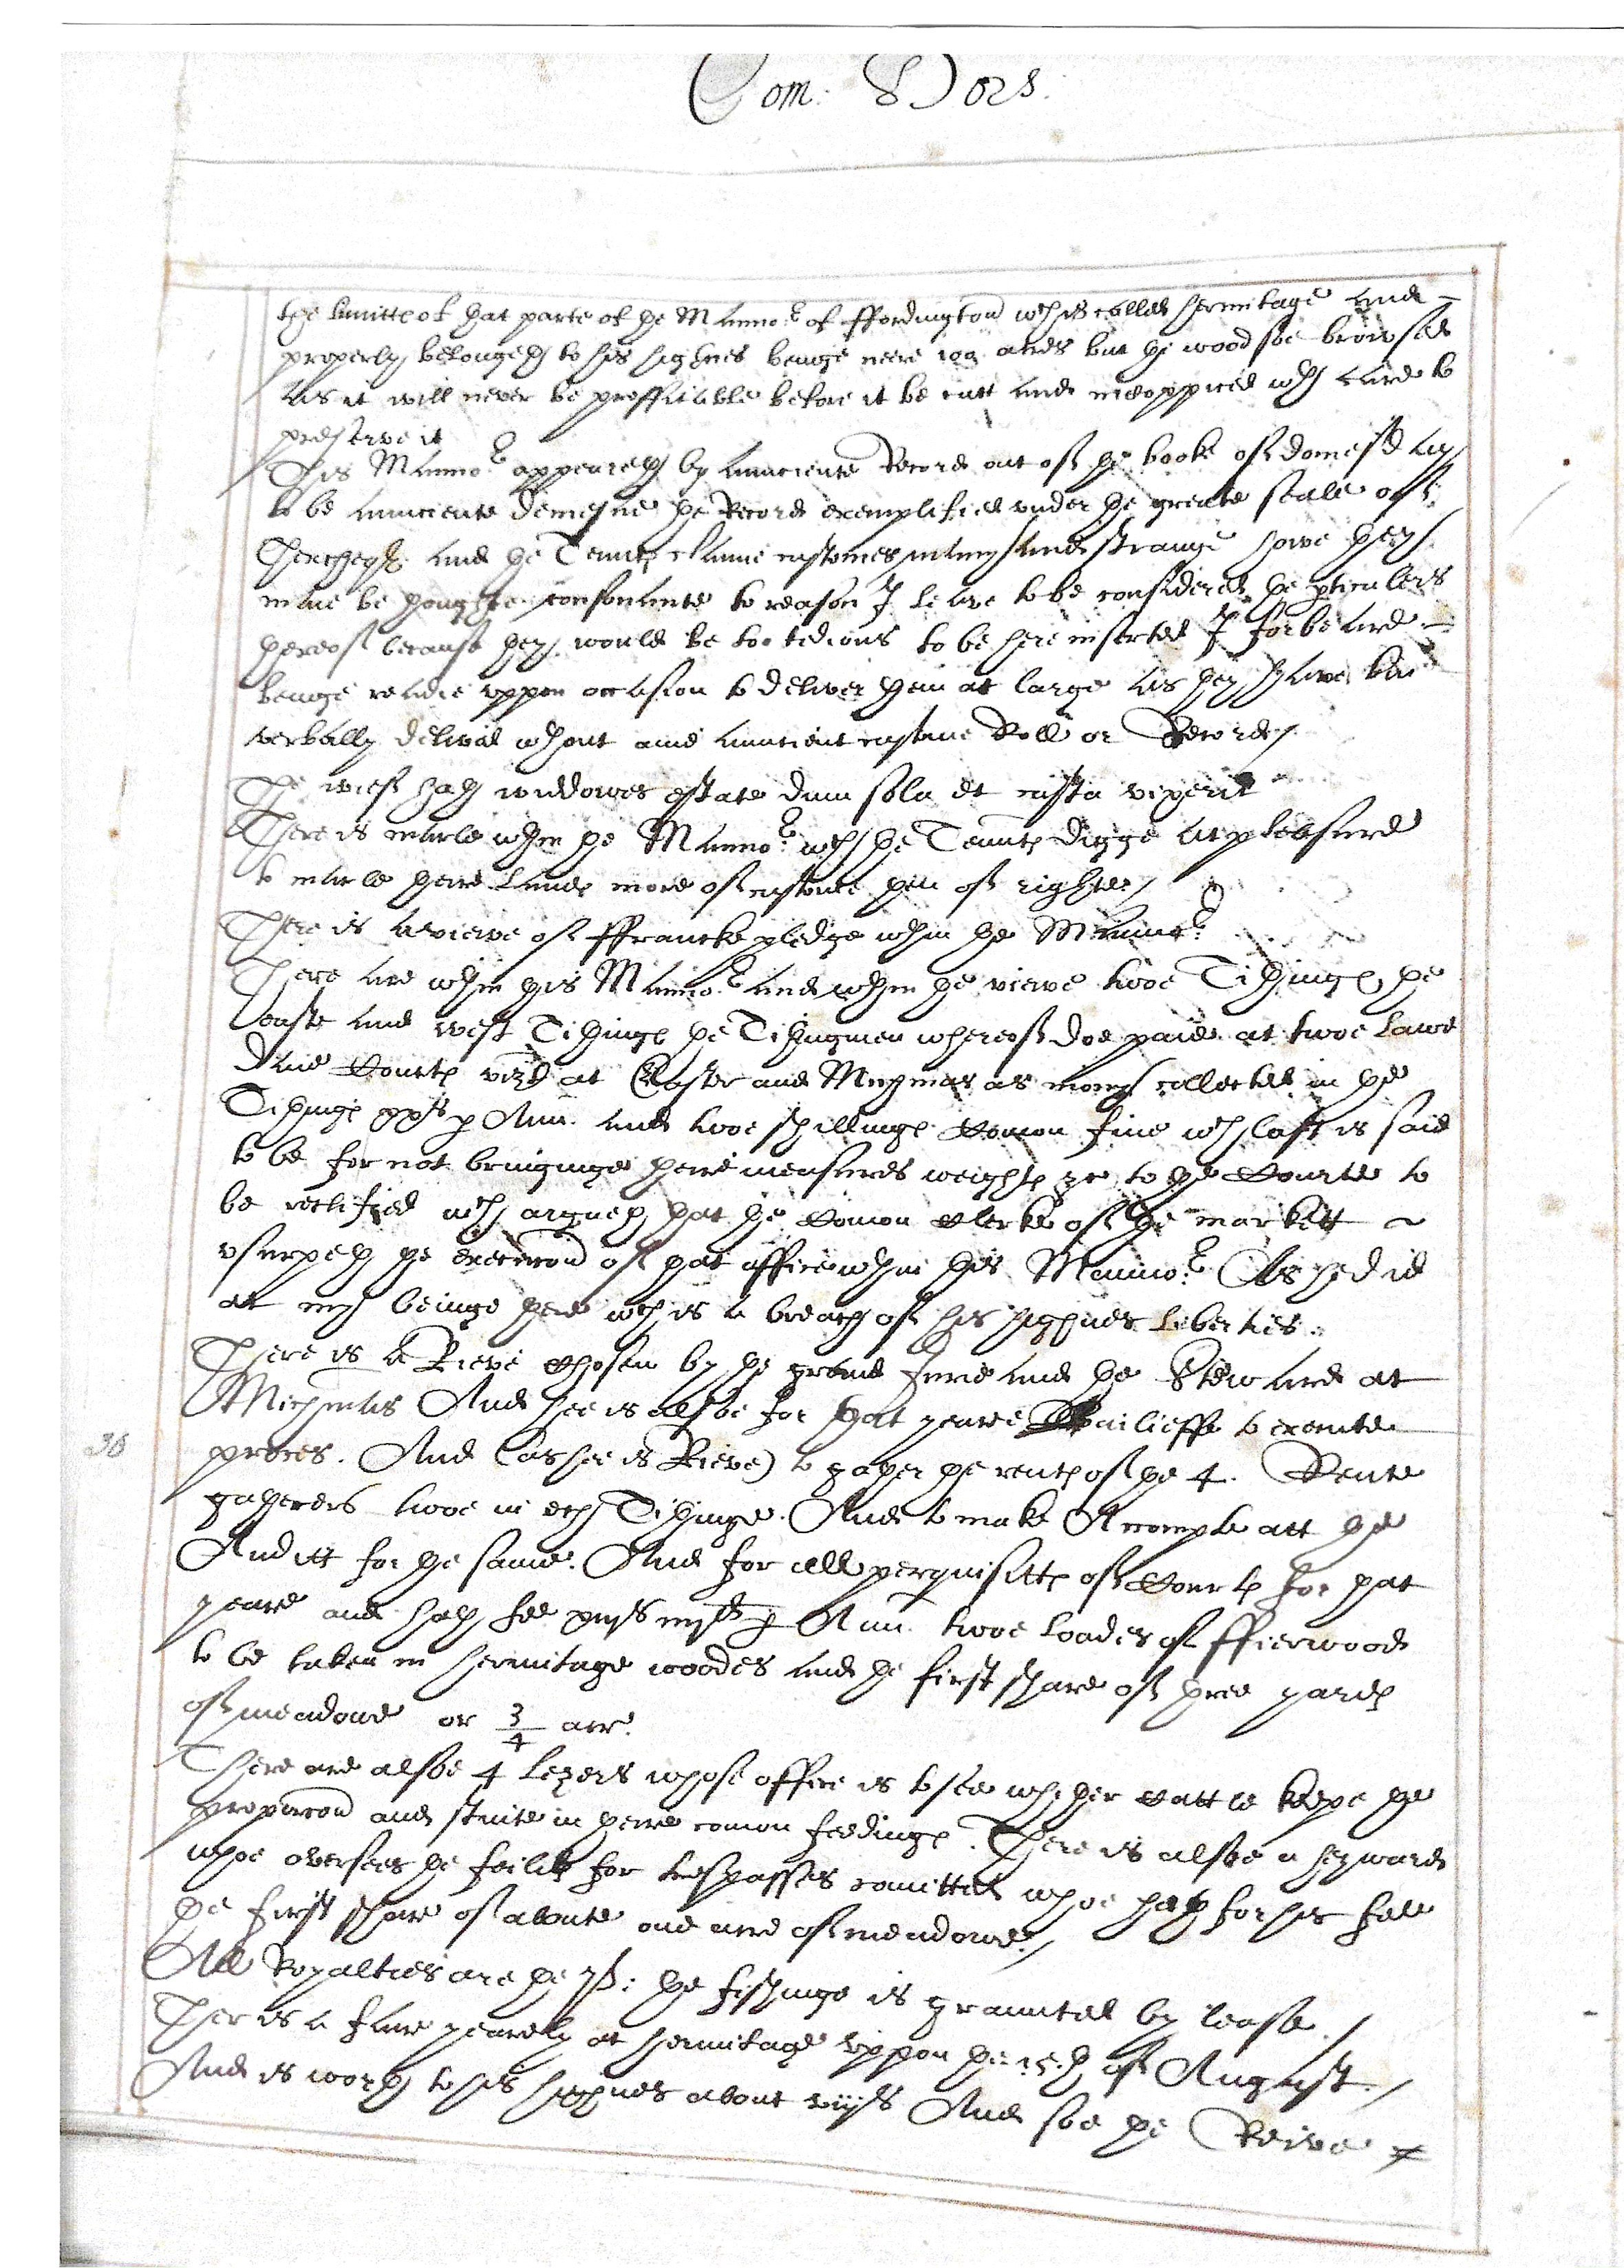 Com: Dors.
the limitte of that parte of the Manno:r of ffordington wch is called hermitage and
properly belongeth to his highnes beinge neere 100 acres but the wood soe browsed
as it will never be proffitable before it be cutt and incoppiced wth care to
preserve it
This Manno:r appeareth by aunciente Record out of the booke of domesday
to be aunciente demesne the Record exemplified under the greate seale of
Thexcheqr. and the Tenntes clame customes many and strange howe they
maie be thoughte consonante to reason I leave to be considered the pticulers
thereof because they would be too tedious to be here inserted I forbeare
beinge readie uppon occasion to deliver them at large as they have bin
verbally delived wthout anie auncient custome Roll or Recorde/
The wief hath widdowes estate dum sola et casta vixerit
There is marle wthin the Manno:r wch the Tenntes digge at pleasure
to marle theire lande more of custome then of righte/
There is a viewe of ffrancke pledge wthin the Manno:r
There are wthin this Manno:r and wthin the viewe twoe Tithinges the
easte and west Tithinges the Tithingmen whereof doe paie at twoe lawe
daie Courtes vizt at Easter and Michmas as mony collected in the
Tithinges xxs p Ann. and twoe shillinges Comon fine wch last is said
to be for not bringinge theire measures weightes &c to the Courte to
be rectified wch argueth that the Comon Clerke of the markett
usurpeth the execucon of that office wthin this Manno:r As he did
at my beinge there wch is a breach of his highnes liberties:
There is a Rieve chosen by the grand Jurie and the Steward at
Michmas And hee is alsoe for that yeare Bailieffe to execute
proces. And (as hee is Rieve) to gather the rentes of the 4. Rente
gatherers twoe in ech Tithinge. And to make Accompte att the
Auditt for the same. And for all perquisittes of Courtes for that
yeare and hath fee p Ann. twoe loades of ffierwood
to be taken in hermitage woodes and the first share of three yardes
of meadowe or 3/4 acr.
There are alsoe 4 lezers whose office is to see whether cattle kepe the
proporcon and stinte in theire comon feedinges. There is alsoe a heyward
whoe oversees the feilde for trespasses comitted whoe hath for his fee
the first share of aboute one acre of meadowe/
All Royalties are the ps: the fishinge is graunted by lease/
Ther is a faire yearely at hermitage uppon the 15th of August/
And is worth to his highnes about viijs And soe the Reive
36